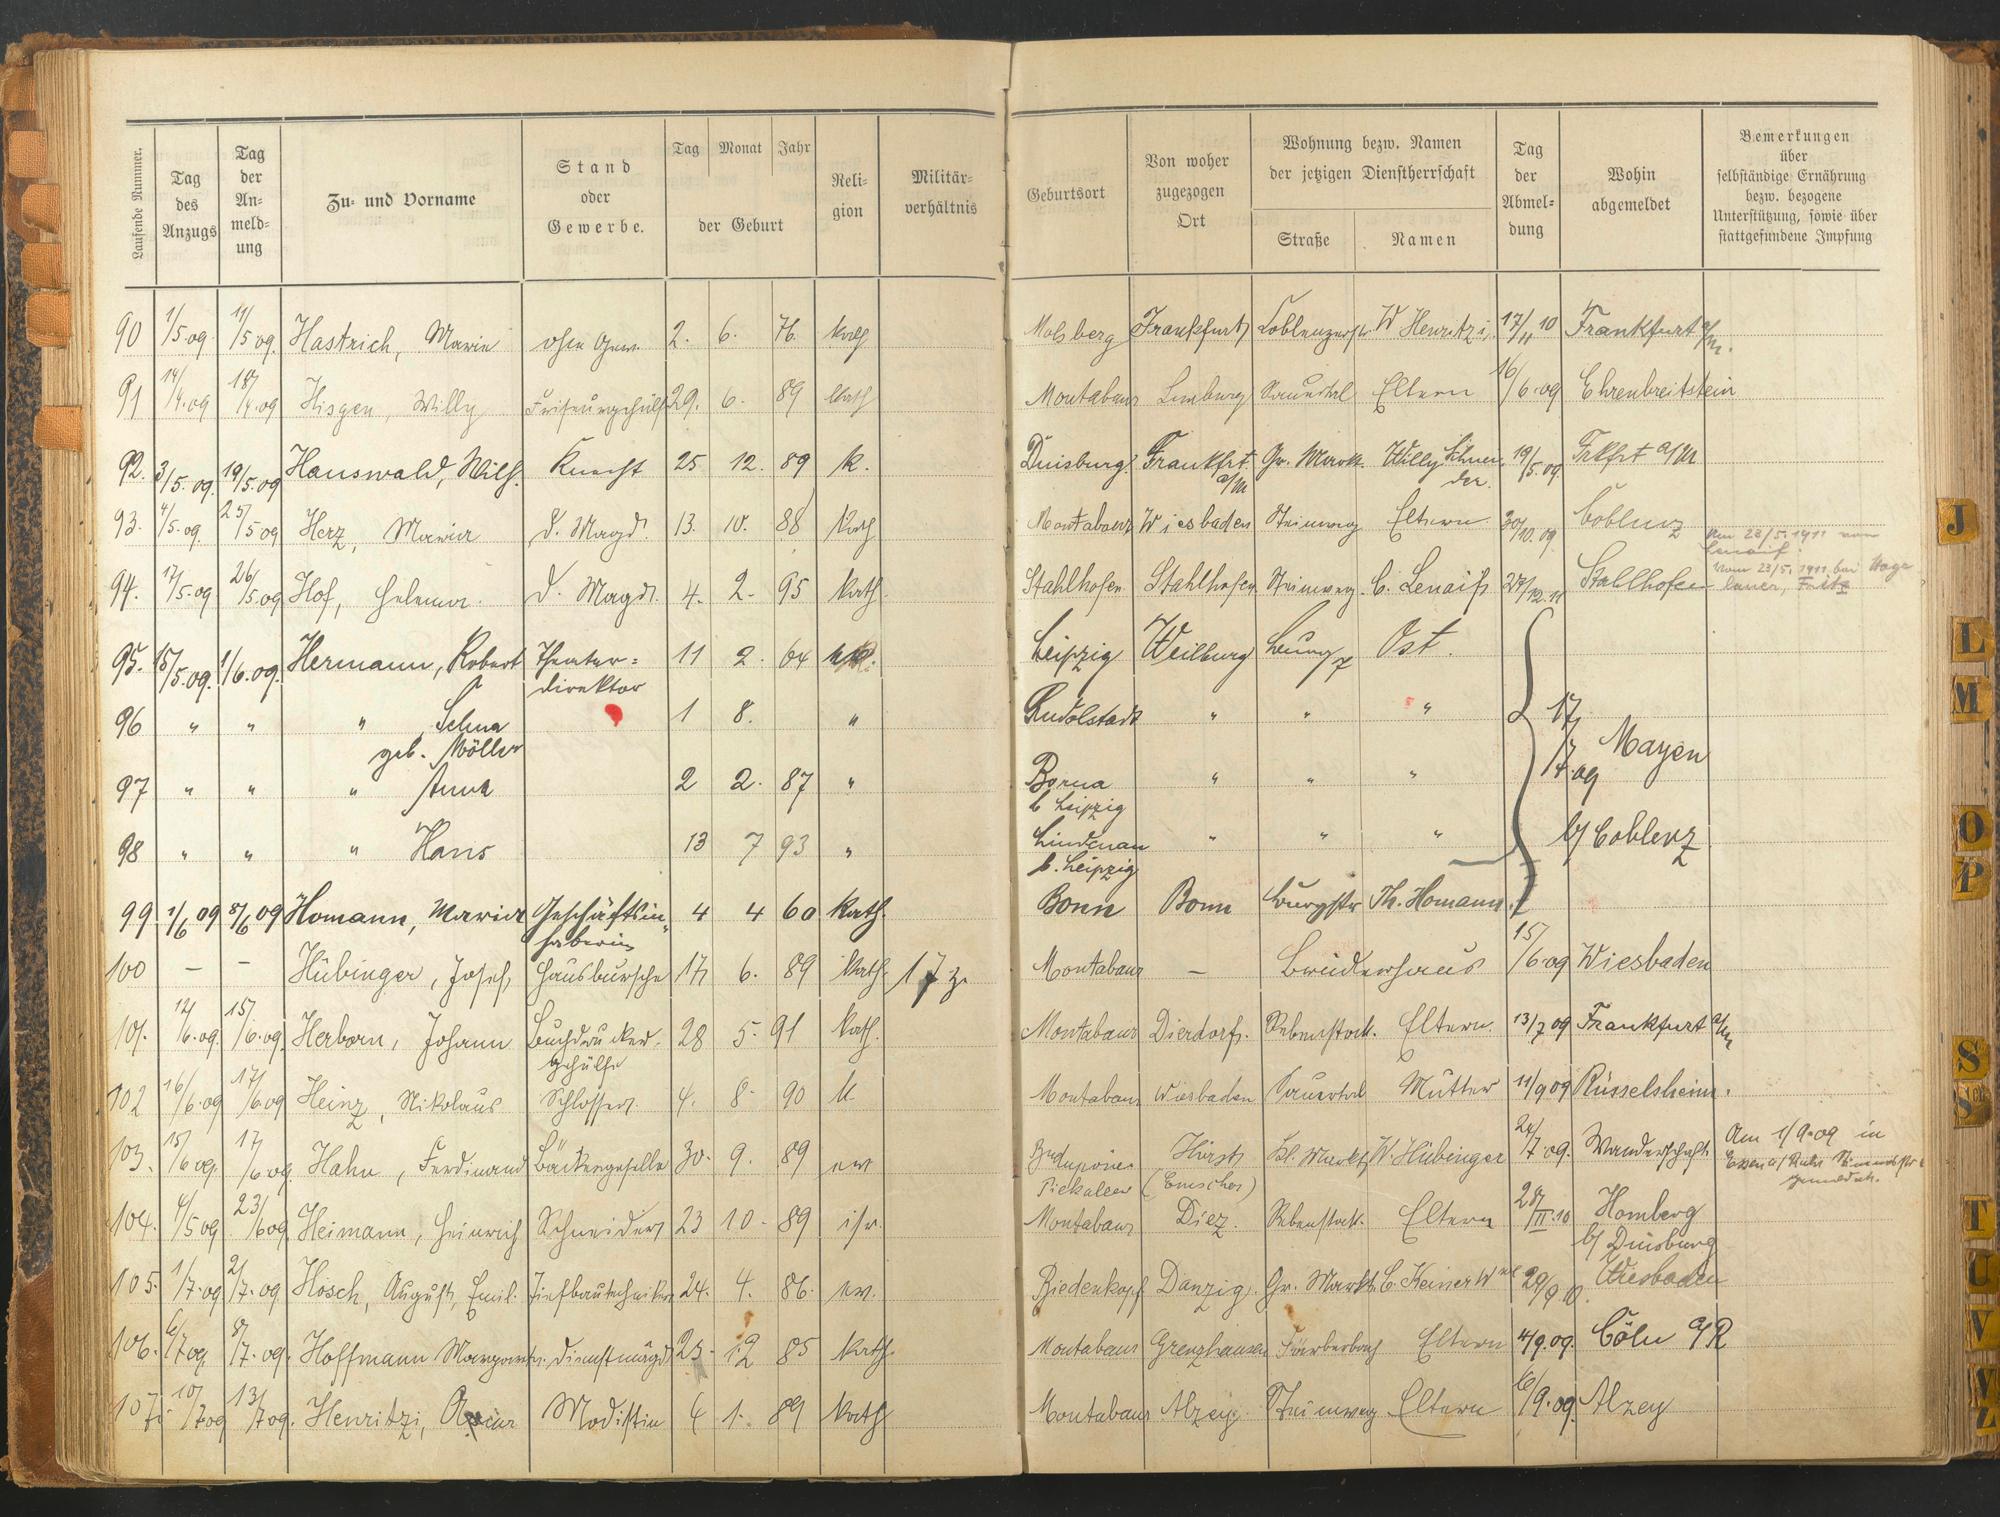 Laufende Nummer.
Tag des Anzugs
Tag der An-meld-ung
Zu- und Vorname
Stand oder Gewerbe.
Tag Monat Jahr
der Geburt
Reli-gion
Militär-verhältnis
Geburtsort
Von woher zugezogen Ort
Wohnung bezw. Namen der jetzigen Dienstherrschaft
Straße Namen
Tag der Abmel-dung
Wohin abgemeldet
Bemerkungen über selbständige Ernährung bezw. bezogene Unterstützung, sowie über stattgefundene Impfung
90 1/5.09. 11/5 09. Hastrich, Marie ohne Gew. 2. 6. 76. kath Molsberg Frankfurt Coblenzerstr. W Henritzi. 17/11 10 Frankfurt a/m.
91 14/4.09 18/4.09 Hisgen, Willy Friseurgehülfe 29. 6. 89 kath Montabaur Limburg Sauertal Eltern 16/6.09 Ehrenbreitstein
92. 3/5.09. 19/5.09 Hauswald, Wilh. Knecht 25 12. 89 k. Duisburg. Frankfrt. a/M Gr. Markt. Willy Schneider. 19/5.09. Frkfrt a/M
93. 4/5.09. 25/5 09 Herz, Maria d. Magd. 13. 10. 88 kath Montabaur Wiesbaden Steinweg Eltern 30/10.09. Coblenz
94. 17/5.09 26/5.09 Hof, Helena. d. Magd. 4. 2. 95 kath. Stahlhofen Stahlhofen Steinweg. C. Lenaif 27/12.11 Stahlhofen
Am 23/5.1911 von
vom 23/5.1911 bei
95. 15/5.09. 1/6.09. Hermann, Robert Theater-direktor 11 2. 64 Leipzig Weilburg Burg Ost.
96 " " " Selma geb. Möller 1 8. " Rudolstadt " " "
17/7.09 Mayen
97 " " " Anna 2 2. 87 " Borna b Leipzig " " "
98 " " " Hans 13 7 93 " Lindenau b. Leipzig " " " b/ Coblenz
99. 1/6 09 8/6 09 Homann, Maria Geschäftsin-haberin 4 4 60 kath. Bonn Bonn Burgstr Th. Homann.
100 — — Hübinger, Josef, Hausbursche 17 6. 89 kath. 17 z. Montabaur — Brüderhaus 15/6.09 Wiesbaden
101. 12/6.09. 15/6.09. Herborn, Johann Buchdrucker-gehülfe 28 5. 91 kath. Montabaur Dierdorf. Rebenstock. Eltern. 13/7 09 Frankfurt a/M
102 16/6.09 17/6.09 Heinz, Nikolaus Schlosser. 4. 8. 90 k Montabaur Wiesbaden Sauertal Mutter 11/9 09 Rüsselsheim.
103. 15/6 09. 17/6 09 Hahn, Ferdinand Bäckergeselle 30. 9. 89 ev Horst (Emscher) Kl. Markt W. Hübinger 24/7.09. Wanderschaft. Am 1/9.09 in Essen a/Ruhr
104. 4/5 09 23/6 09 Heimann, Heinrich Schneider 23 10. 89 isr. Montabaur Diez. Rebenstock. Eltern 28/II.10 Homberg b/ Duisburg
105. 1/7.09 2/7.09 Hosch, August, Emil. Tiefbautechniker 24. 4. 86. ev. Biedenkopf Danzig. Gr. Markt C. Keiner Wwe 29/9.10. Wiesbaden
106. 6/7 09 8/7.09. Hoffmann Margareta. Dienstmagd 25. 12 85 kath. Montabaur Grenzhausen Färberbach Eltern 4/9.09. Cöln a/R
107. 10/7 09 13/7 09. Henritzi, Modistin 6 1. 89 kath Montabaur Alzey. Steinweg Eltern 6/9.09. Alzey
J
L
M
O
P
S
Sch
T
U
V
W
Z